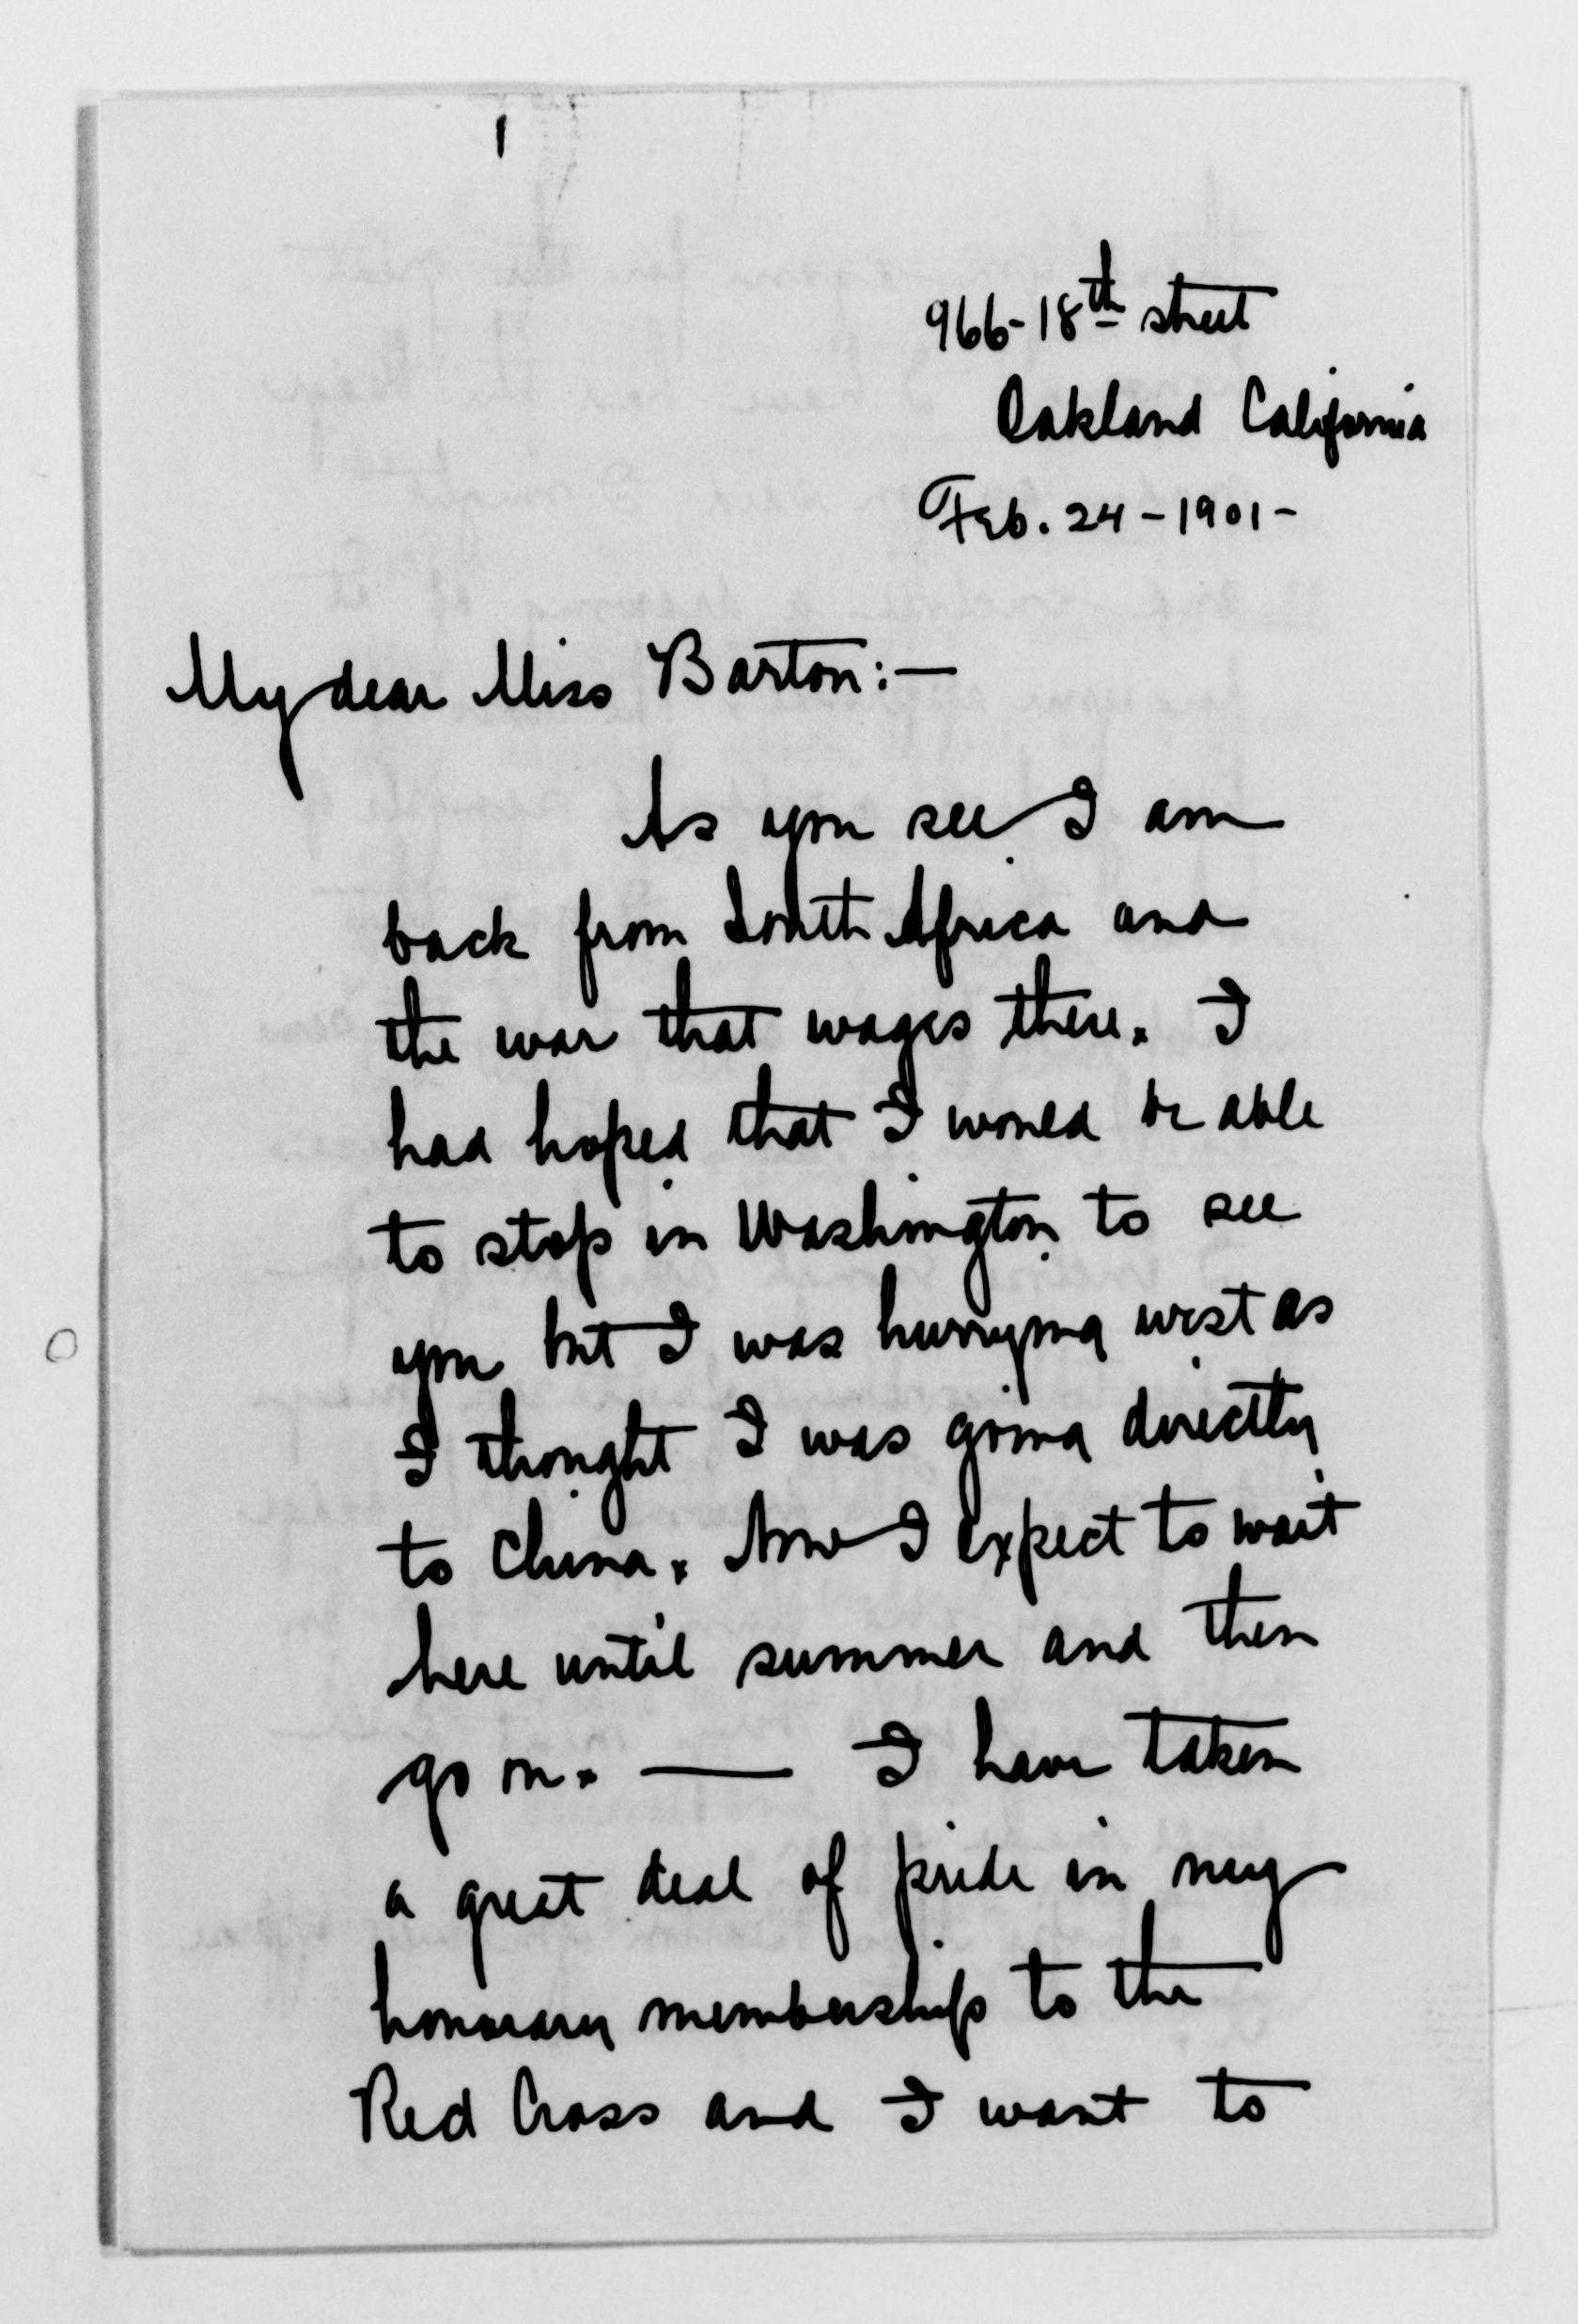 1
966-18th street
Oakland California
Feb. 24-1901-
My dear Miss Barton:—
As you see I am
back from South Africa and
the war that wages there. I
had hoped that I would be able
to stop in Washington to see
you but I was hurrying west as
I thought I was going directly
to China. Now I expect to wait
here until summer and then
go on. — I have taken
a great deal of pride in my
honorary membership to the
Red Cross and I want to